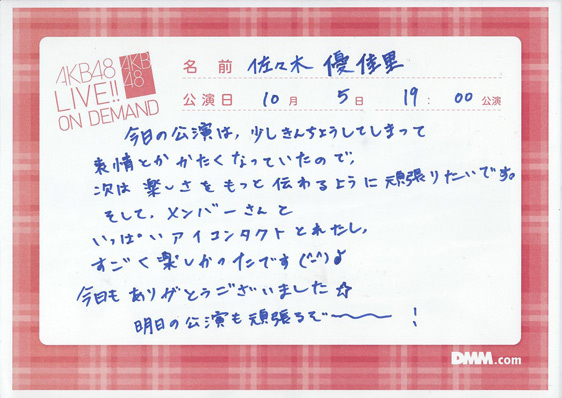 AKB48
LIVE!!
ON DEMAND
AKB
48
名前 佐々木 優佳里
公演日 10月 5日 19:00公演
今日の公演は、少しきんちょうしてしまって
表情とかかたくなっていたので、
次は楽しさをもっと伝わるように頑張りたいです。
そして、メンバーさんと
いっぱいアイコンタクトとれたし、
すごく楽しかったです(^-^)♪
今日もありがとうございました☆
明日の公演も頑張るぞ〜〜!
DMM.com